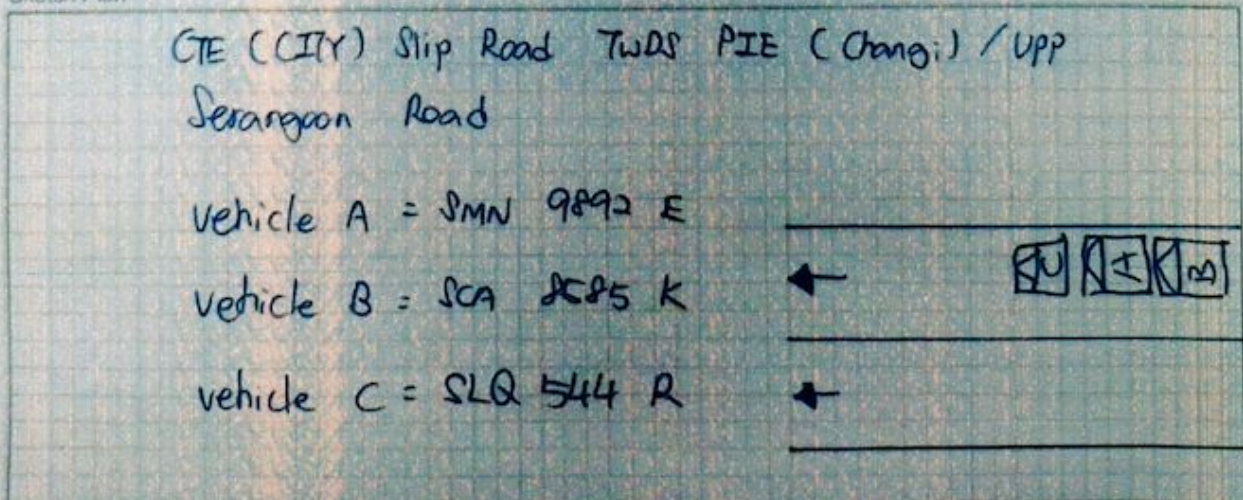 CTE (CITY) Slip Road TWDS PIE (Changi) / UPP
Serangoon Road
vehicle A = SMN 9892 E
vehicle B = SCA K
vehicle C = SLQ 544 R
C A B